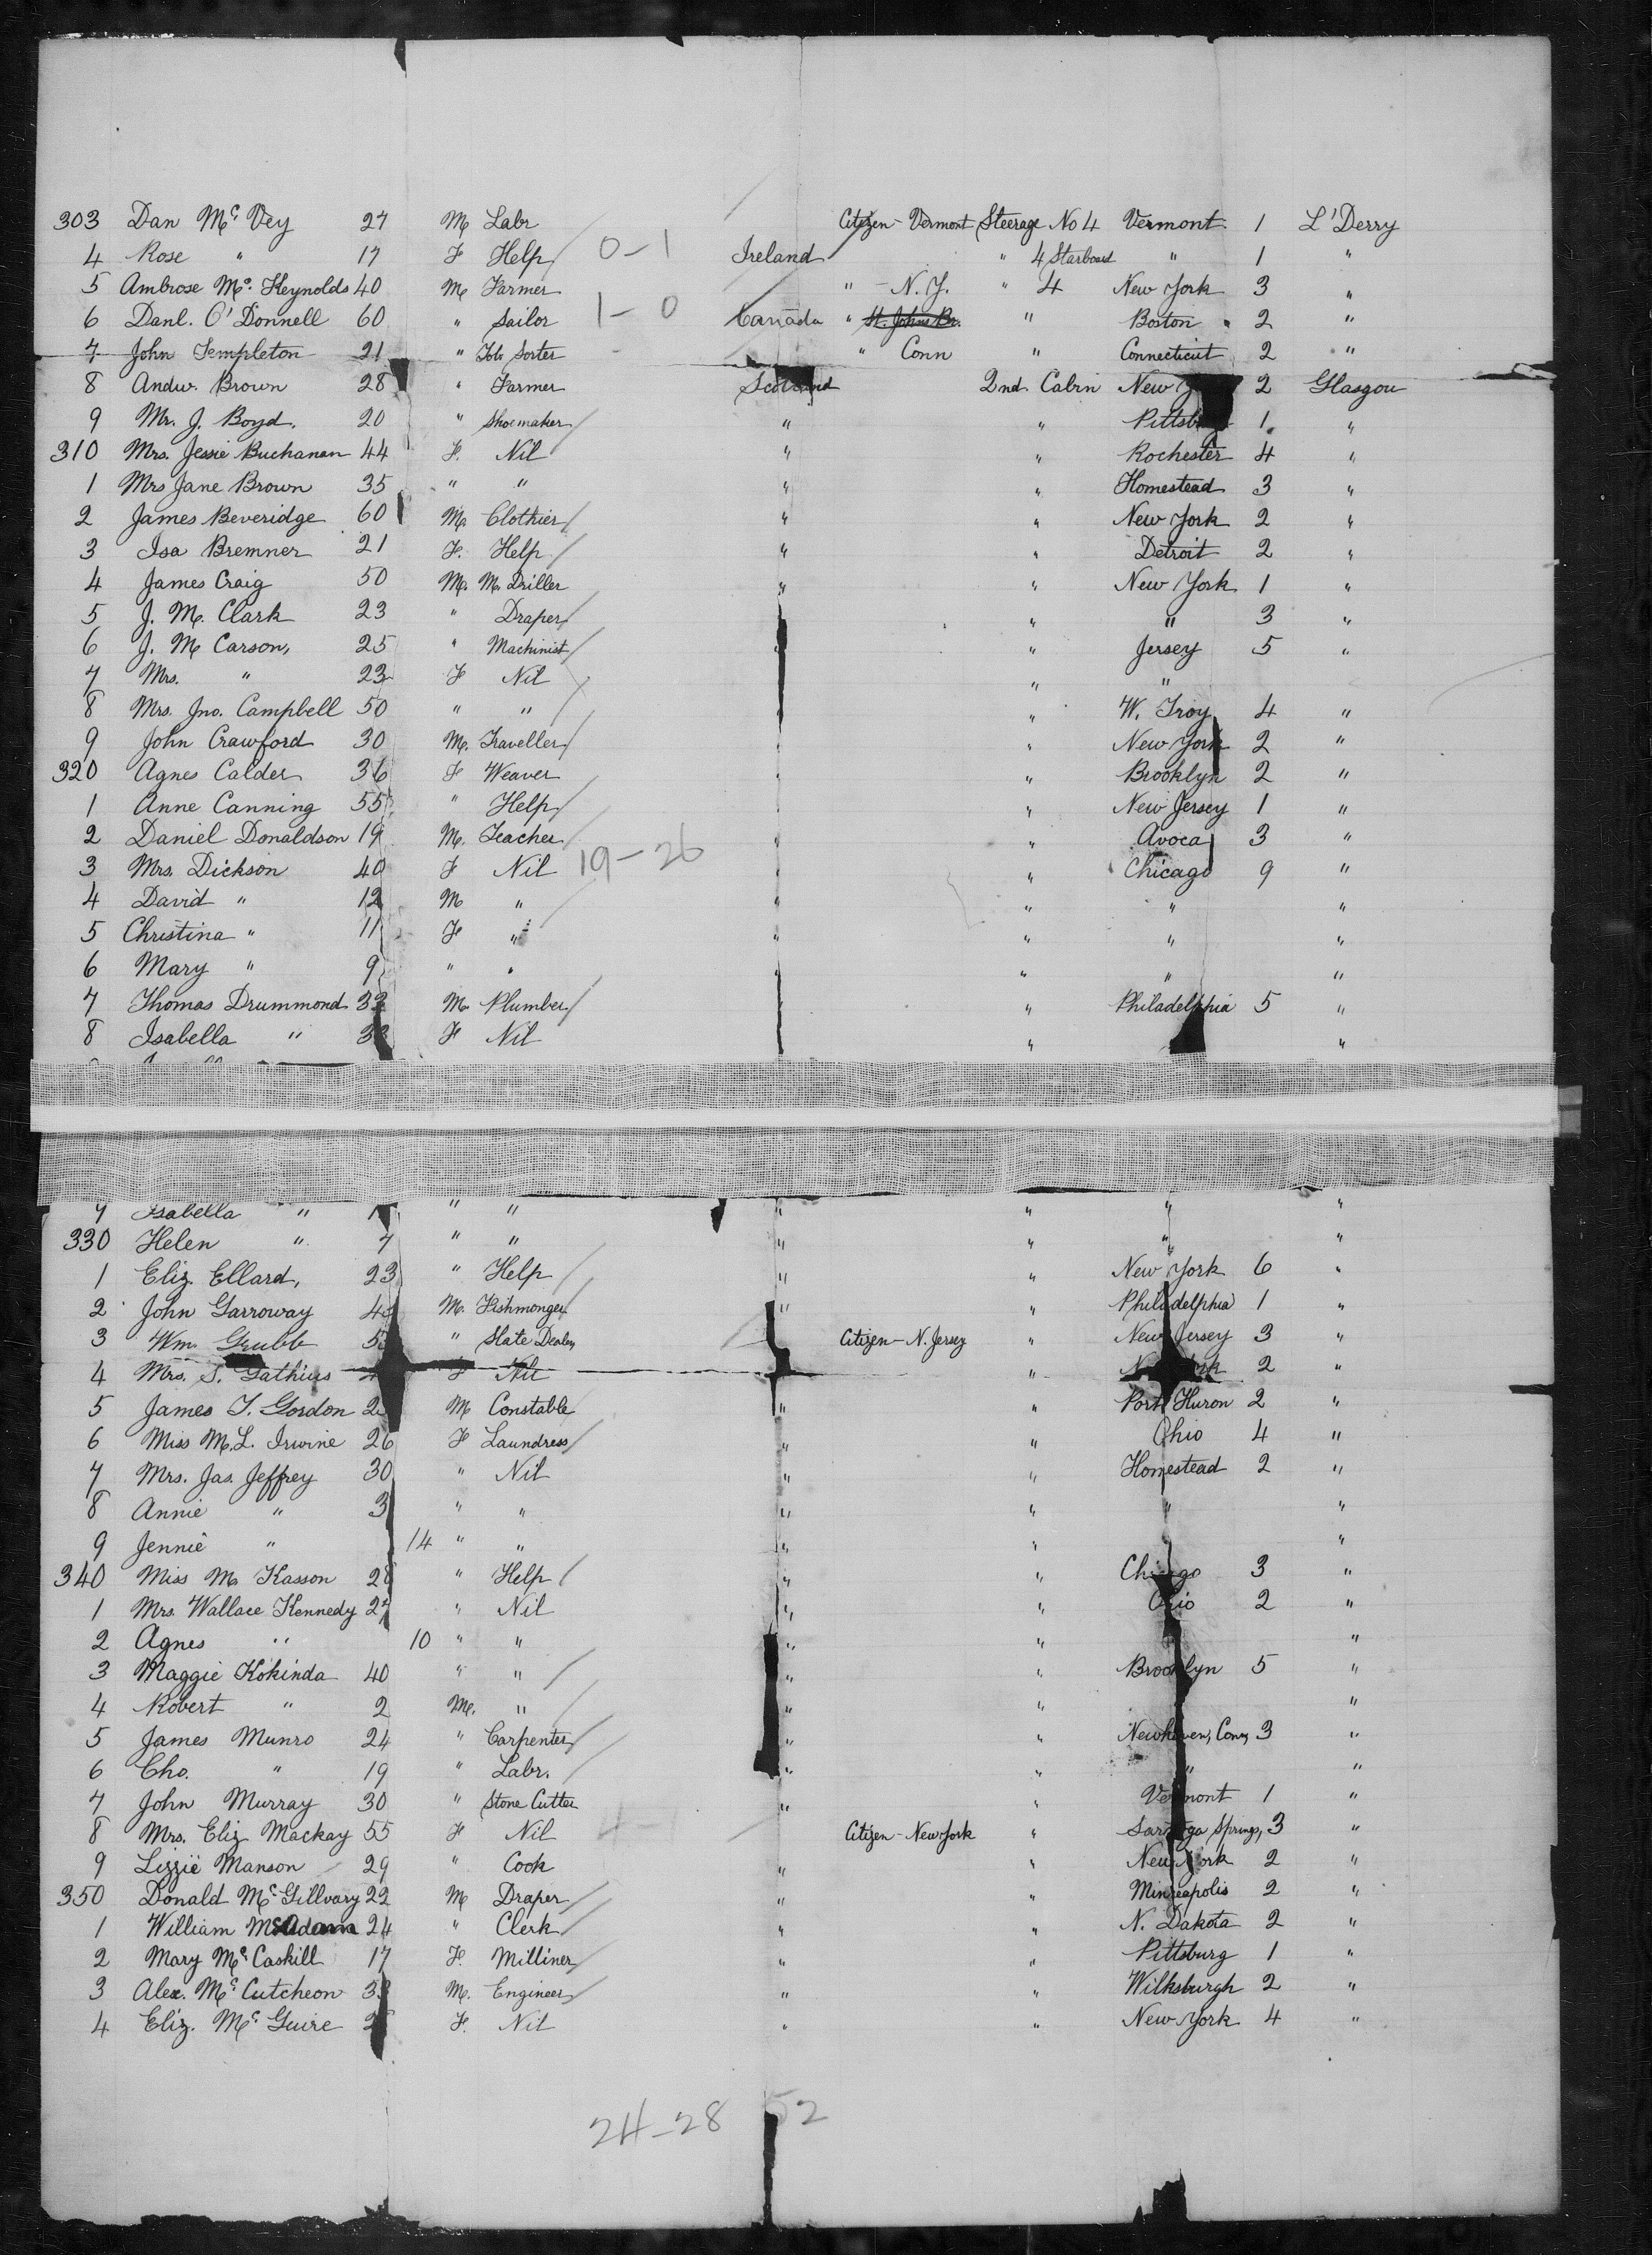 303 Dan Mc Vey 27 M Labr Citizen - Vermont Steerage No 4 Vermont 1 L'Derry
4 Rose " 17 F Help 0-1 Ireland " 4 Starboard " 1 "
5 Ambrose Mc. Keynolds 40 M Farmer " - N.Y. " 4 New York 3 "
6 Danl. O'Donnell 60 " Sailor 1-0 Canada " St. Johns Br. " Boston " 2 "
7 John Templeton 21 " Tob Sorter - " Conn " Connecticut 2 "
8 Andw. Brown 28 " Farmer Scotland 2nd Cabin New 2 Glasgow
9 Mr. J. Boyd. 20 " Shoemaker " " 1 "
310 Mrs. Jessie Buchanan 44 F. Nil " " Rochester 4 "
1 Mrs Jane Brown 35 " " " " Homestead 3 "
2 James Beveridge 60 M. Clothier " " New York 2 "
3 Isa Bremner 21 F. Help " " Detroit 2 "
4 James Craig 50 M. M. Driller " " New York 1 "
5 J. M. Clark 23 " Draper " " 3 "
6 J. M Carson, 25 " Machinist " " Jersey 5 "
7 Mrs. " 23 F Nil " "
8 Mrs. Jno. Campbell 50 " " " W. Troy 4 "
9 John Crawford 30 M. Traveller " " New York 2 "
320 Agnes Calder 36 F Weaver " " Brooklyn 2 "
1 Anne Canning 55 " Help " New Jersey 1 "
2 Daniel Donaldson 19 M. Teacher " " Avoca 3 "
3 Mrs. Dickson 40 F Nil 19-26 " " Chicago 9 "
4 David " 12 M " " " " "
5 Christina " 11 F " " " " "
6 Mary " 9 " " " " " "
7 Thomas Drummond 33 M. Plumber " " Philadelphia 5 "
8 Isabella " 33 F Nil " "
9 Isabella " " " " " " "
330 Helen " 7 " " " " " "
1 Eliz. Ellard, 23 " Help " " New York 6 "
2 John Garroway M. Fishmonger " " Philadelphia 1 "
3 Wm. Grubb " Slate Dealer Citizen - N. Jersey " New Jersey 3 "
4 Mrs. S. Gathius F Nil " 2 "
5 James T. Gordon M Constable " " Port Huron 2 "
6 Miss M.L. Irwine 26 F Laundress " " Ohio 4 "
7 Mrs. Jas. Jeffrey 30 " Nil " " Homestead 2 "
8 Annie " 3 " " " " " "
9 Jennie " 14 " " " " "
340 Miss M Kasson 28 " Help " " Chicago 3 "
1 Mrs. Wallace Kennedy 27 " Nil " " Ohio 2 "
2 Agnes " 10 " " " " "
3 Maggie Kokinda 40 " " " " Brooklyn 5 "
4 Robert " 2 M. " " " "
5 James Munro 24 " Carpenter " " Newhaven, Conn, 3 "
6 Cho. " 19 " Labr. " " " "
7 John Murray 30 " Stone Cutter " " Vermont 1 "
8 Mrs. Eliz Mackay 55 F Nil 4- Citizen - New York " Saratoga Springs, 3 "
9 Lizzie Manson 29 " Cook " " New York 2 "
350 Donald Mc Gillvary 22 M Draper " " Minneapolis 2 "
1 William McAdam 24 " Clerk " " N. Dakota 2 "
2 Mary Mc Caskill 17 F. Milliner " " Pittsburg 1 "
3 Alex. Mc Cutcheon 33 M. Engineer " " Wilksburgh 2 "
4 Eliz. Mc Guire F. Nil " " New York 4 "
24-28 52